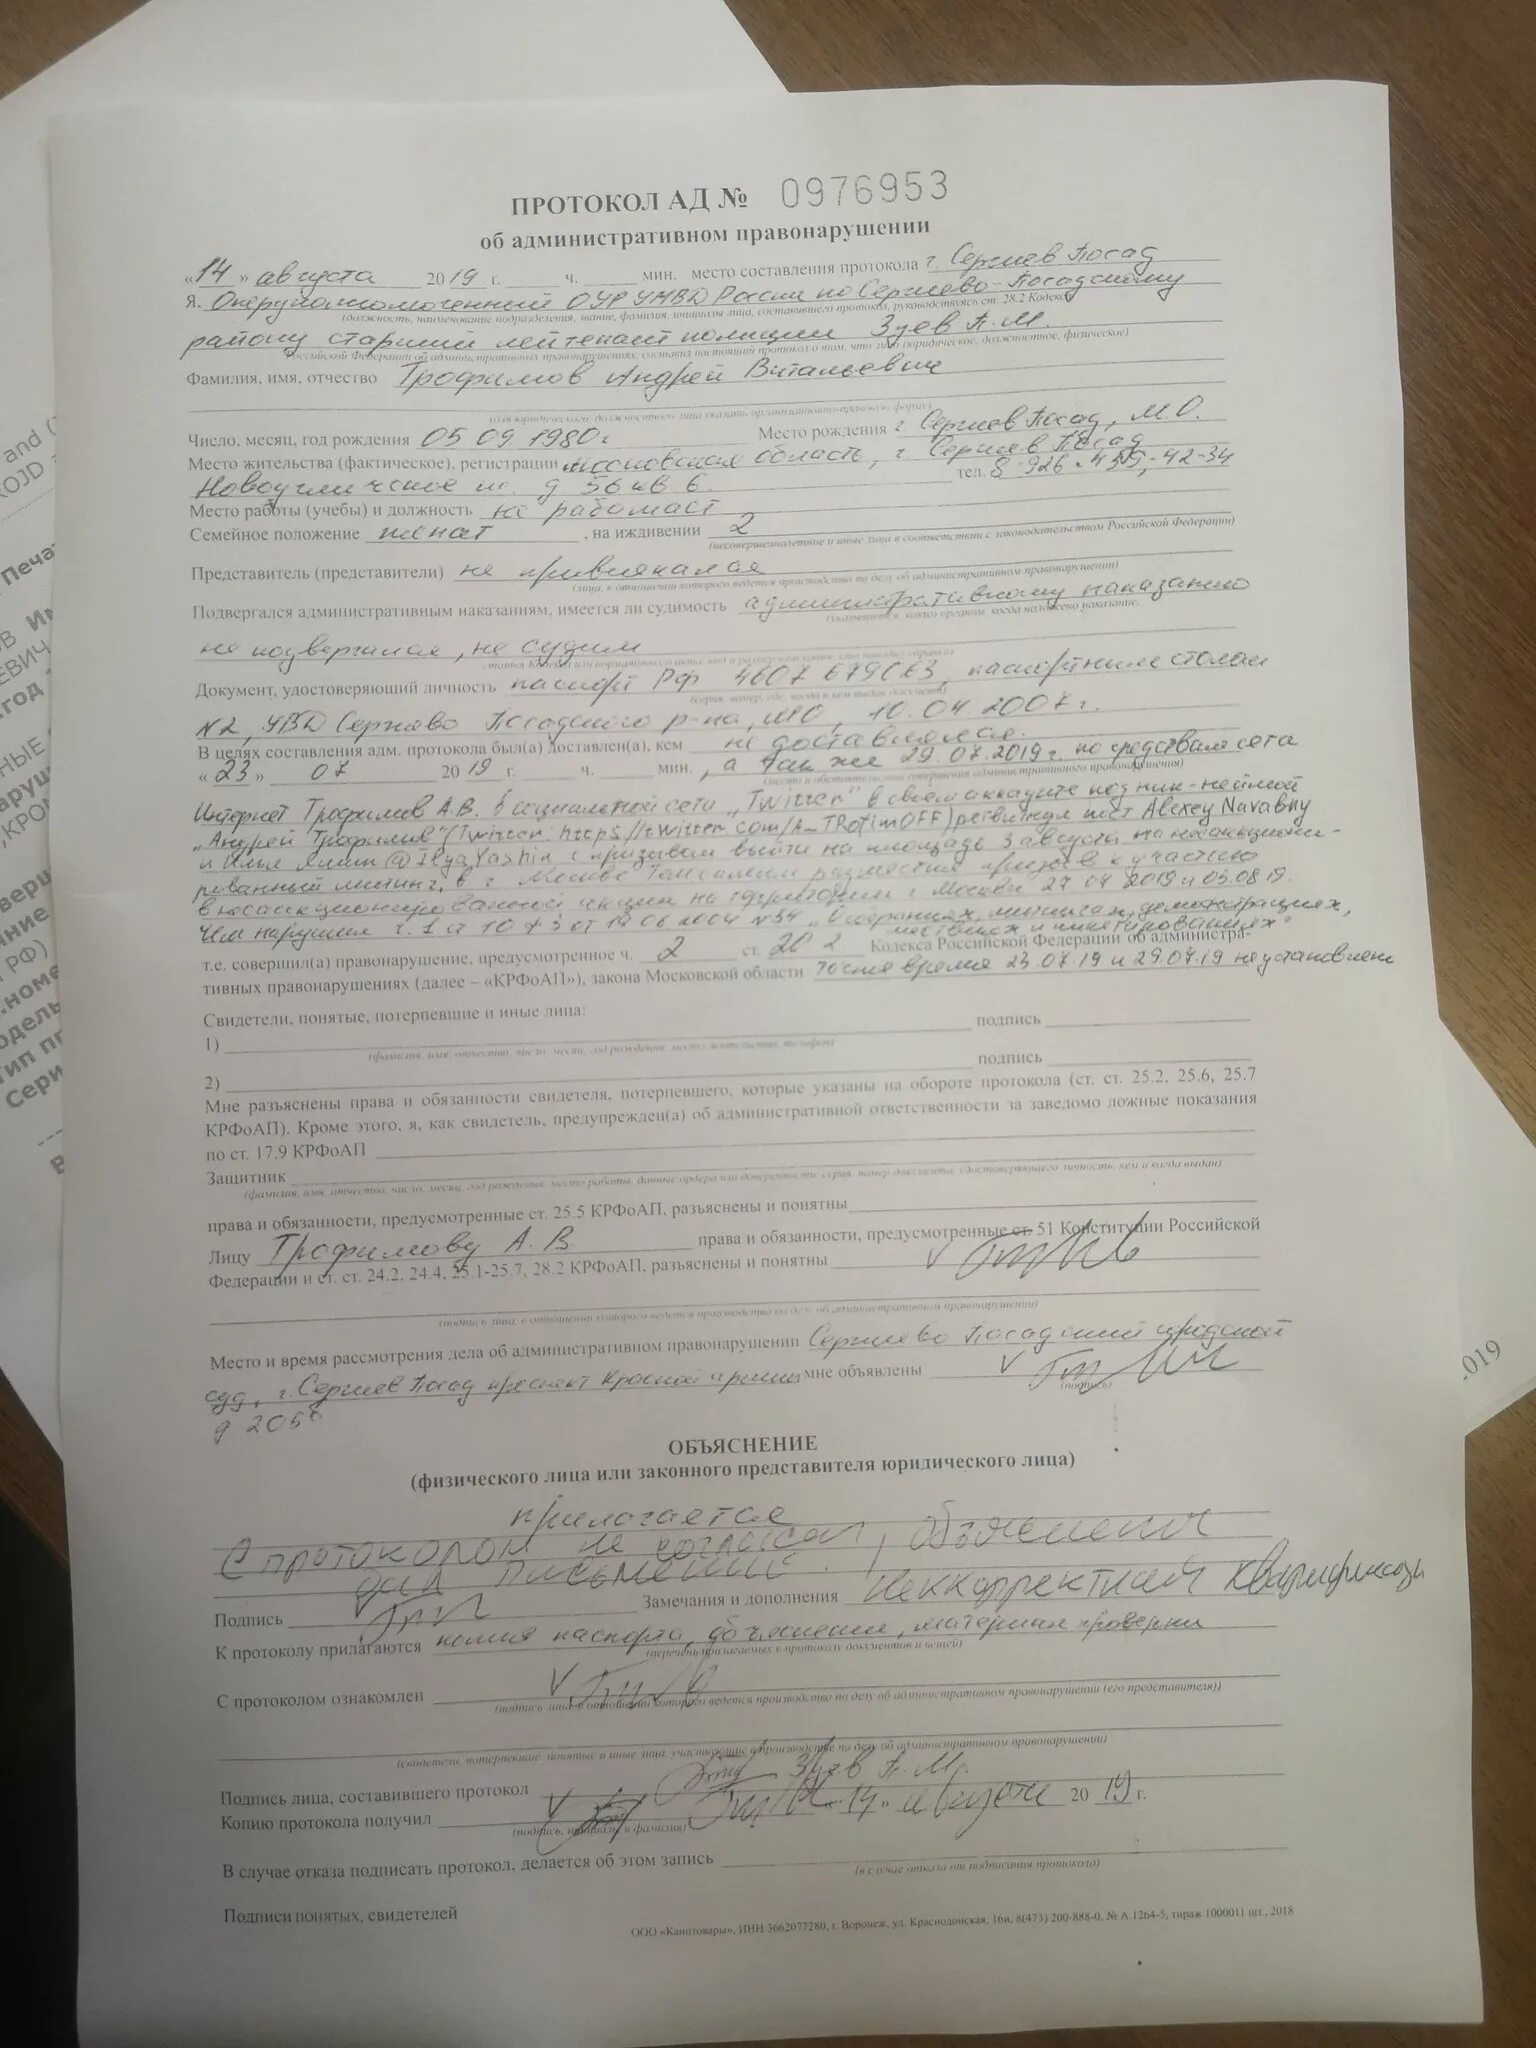 ПРОТОКОЛ АД № 0976953
об административном правонарушении
«14» августа 2019 г. ч. мин. место составления протокола г. Сергиев Посад
Я, Оперуполномоченный ОУР УМВД России по Сергиево-Посадскому
(должность, наименование подразделения, звание, фамилия, инициалы лица, составившего протокол, руководствуясь ст. 28.2 Кодекса
району старший лейтенант полиции Зуев П.М.
Российской Федерации об административных правонарушениях, составил настоящий протокол о том, что лицо (юридическое, должностное, физическое)
Фамилия, имя, отчество Трофимов Андрей Витальевич
(для юридического, должностного лица указать организационно-правовую форму)
Число, месяц, год рождения 05.09.1980г Место рождения г. Сергиев Посад, М.О.
Место жительства (фактическое), регистрации Московская область, г. Сергиев Посад
Новоугличское ш. д. 56 кв 6 тел. 8-926-
Место работы (учебы) и должность не работает
Семейное положение женат , на иждивении 2
(несовершеннолетние и иные лица в соответствии с законодательством Российской Федерации)
Представитель (представители) не привлекался
(лица, в отношении которого ведется производство по делу об административном правонарушении)
Подвергался административным наказаниям, имеется ли судимость административному наказанию
не подвергался, не судим
Документ, удостоверяющий личность паспорт РФ 4607 паспортным столом
(серия, номер, где, когда и кем выдан документ)
№2, УВД Сергиево Посадского р-на, МО, 10.04.2007г.
В целях составления адм. протокола был(а) доставлен(а), кем не доставлялся.
«23» 07 2019 г. ч. мин. , а так же 29.07.2019г. по средствам сети
(место и обстоятельства совершения административного правонарушения)
Интернет Трофимов А.В. в социальной сети „Twitter" в своем аккаунте под ник-неймом
„Андрей Трофимов" (Twitter: https://twitter.com/A_TRofimOFF) ретвитнул пост Alexey Navalny
и Илья Яшин @IlyaYashin с призывам выйти на площадь 3 августа на несанкциони-
рованный митинг, в г. Москве Тем самым разместил призыв к участию
в несанкционированной акции на территории г. Москвы 27.07.2019 и 03.08.19.
Чем нарушил ч. 1 ст 10 ФЗ от 19.06.2004 №54 „О собраниях, митингах, демонстрациях,
шествиях и пикетированиях"
т.е. совершил(а) правонарушение, предусмотренное ч. 2 ст. 20.2 Кодекса Российской Федерации об администра-
тивных правонарушениях (далее – «КРФоАП»), закона Московской области время 23.07.19 и 29.07.19 не установлено
Свидетели, понятые, потерпевшие и иные лица:
1) подпись
(фамилия, имя, отчество, число, месяц, год рождения, место жительства, телефон)
2) подпись
Мне разъяснены права и обязанности свидетеля, потерпевшего, которые указаны на обороте протокола (ст. ст. 25.2, 25.6, 25.7
КРФоАП). Кроме этого, я, как свидетель, предупрежден(а) об административной ответственности за заведомо ложные показания
по ст. 17.9 КРФоАП
Защитник
(фамилия, имя, отчество, число, месяц, год рождения, место работы, данные ордера или доверенности: серия, номер документа, удостоверяющего личность, кем и когда выдан)
права и обязанности, предусмотренные ст. 25.5 КРФоАП, разъяснены и понятны
Лицу Трофимову А. В. права и обязанности, предусмотренные ст. 51 Конституции Российской
Федерации и ст. ст. 24.2, 24.4, 25.1-25.7, 28.2 КРФоАП, разъяснены и понятны
(подпись лица, в отношении которого ведется производство по делу об административном правонарушении)
Место и время рассмотрения дела об административном правонарушении Сергиево Посадский городской
суд, г. Сергиев Посад проспект Красной армии мне объявлены
(подпись)
ОБЪЯСНЕНИЕ
(физического лица или законного представителя юридического лица)
прилагается
С протоколом не согласен, объяснения
дал письменные.
Подпись Замечания и дополнения
К протоколу прилагаются копия паспорта, объяснение, материал проверки
(перечень прилагаемых к протоколу документов и вещей)
С протоколом ознакомлен
(подпись лица в отношении которого ведется производство по делу об административном правонарушении (его представителя))
(свидетели, потерпевшие, понятые и иные лица, участвующие в производстве по делу об административном правонарушении)
Подпись лица, составившего протокол Зуев П. М.
Копию протокола получил «14» августа 2019 г.
(подпись, инициалы и фамилия)
В случае отказа подписать протокол, делается об этом запись
(в случае отказа от подписания протокола)
Подписи понятых, свидетелей
ООО «Канцтовары», ИНН 3662077280, г. Воронеж, ул. Краснодонская, 16и, 8(473) 200-888-0, № А.1264-5, тираж 1000011 шт., 2018